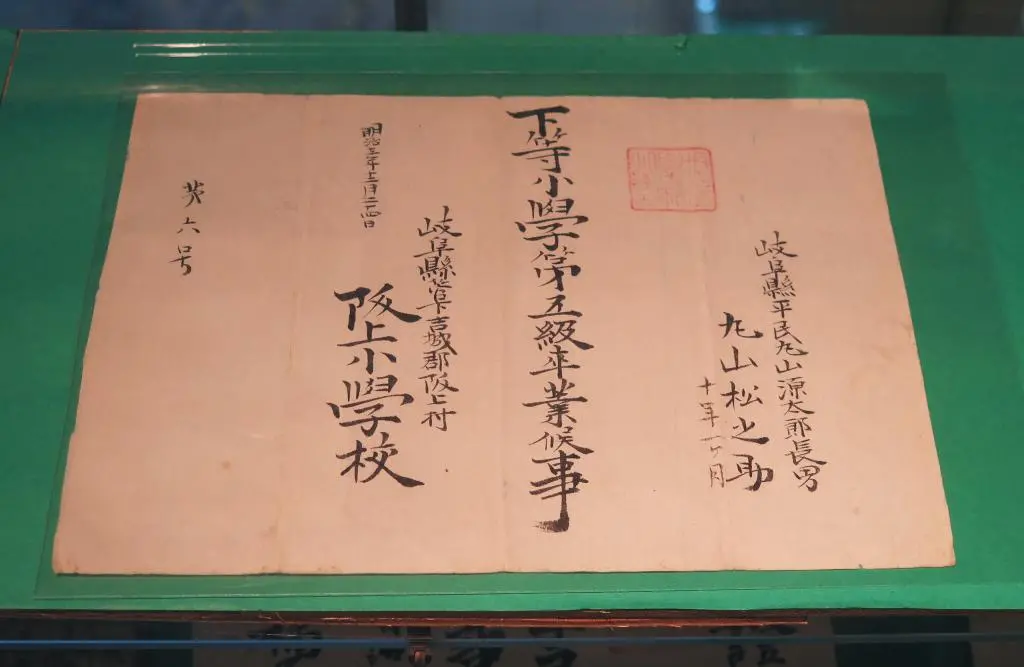 岐阜縣平民丸山源太郎長男
丸山松之助
十年一ヶ月
下等小學第五級卒業候事
岐阜縣管下吉城郡阪上村
阪上小學校
明治十二年十二月二十四日
第六号